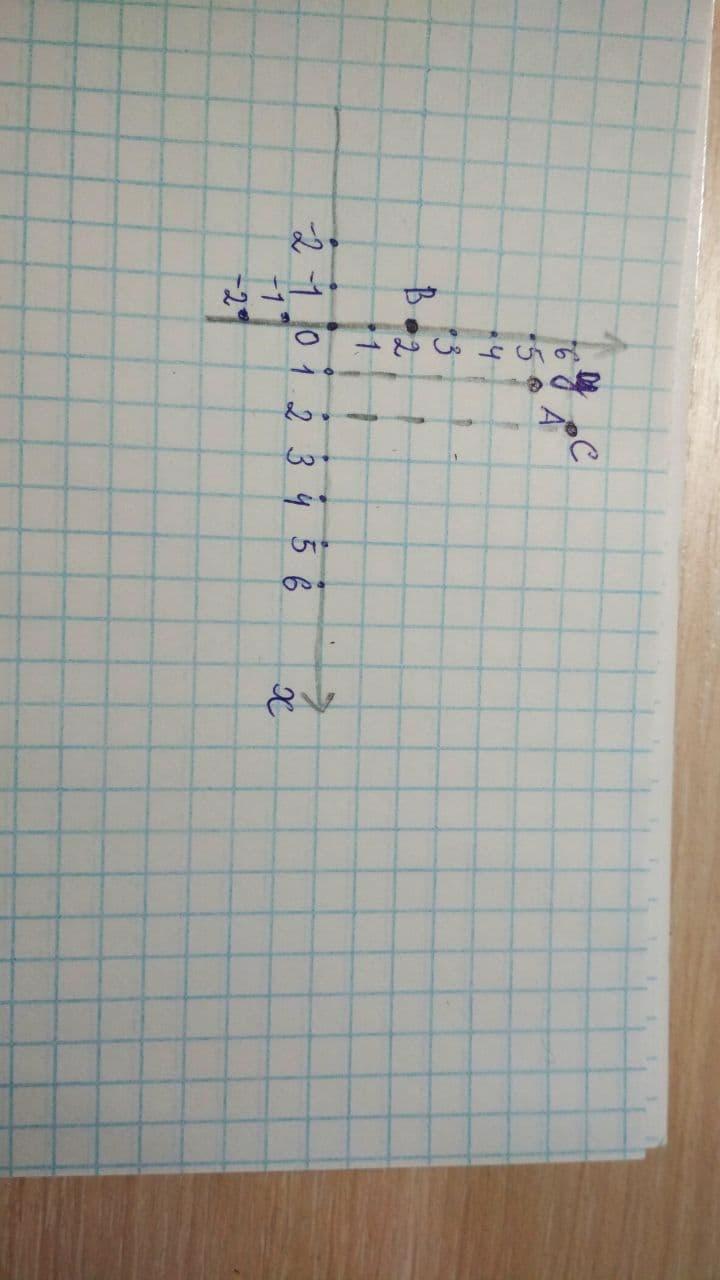 y
6 C
5 A
4
3
B 2
1
-2 -1 0 1 2 3 4 5 6 x
-1
-2